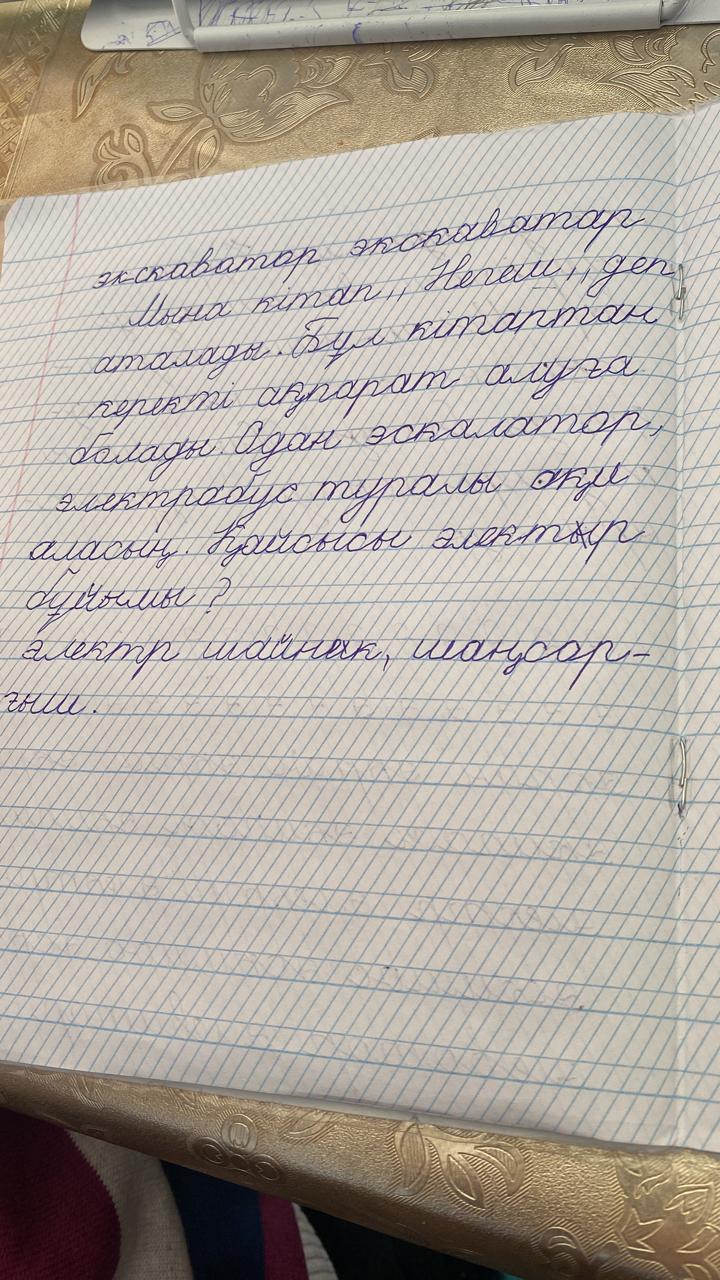 экскаватор экскаватар
Мына кітап ,, Негеш ,, деп
аталады. Бұл кітаптан
керекті ақпарат алуға
болады. Одан эскалатор,
электробус туралы оқи
аласың. Қайсысы электыр
бұйымы ?
электр шайнек, шаңсор-
ғыш.